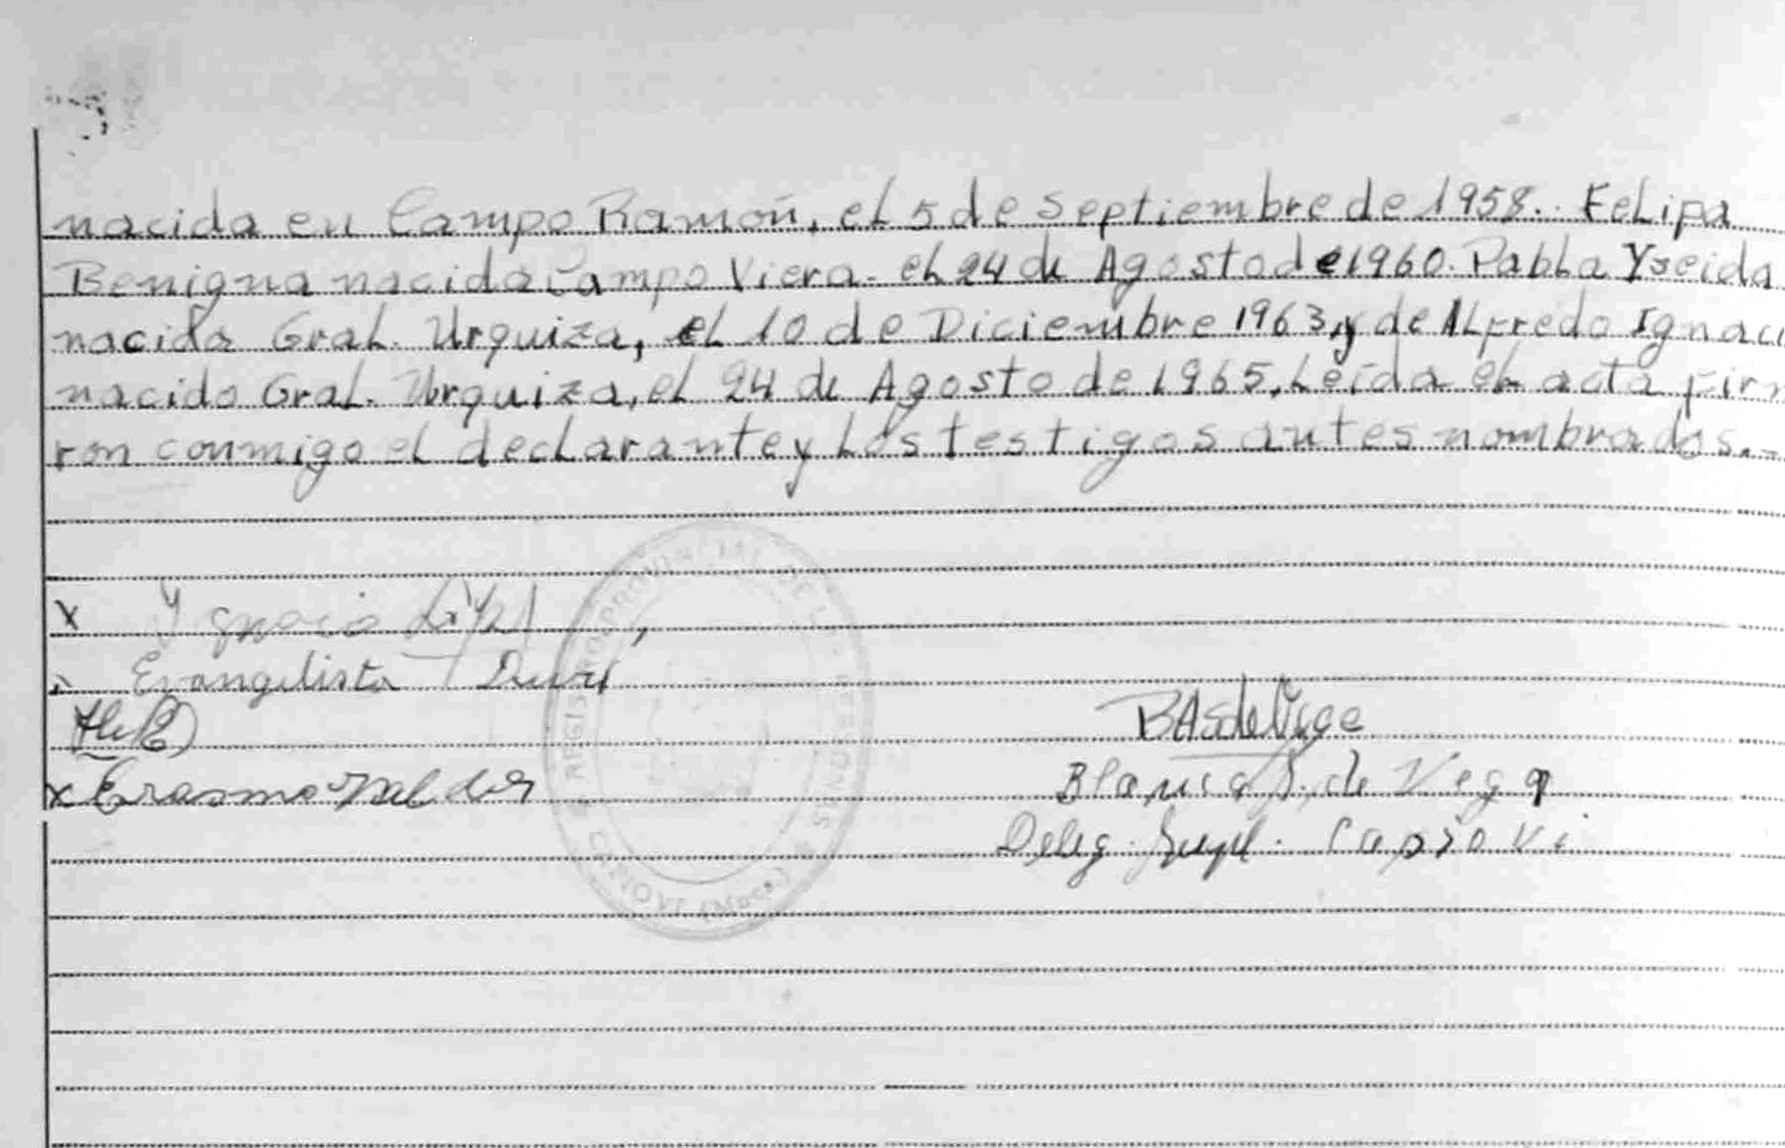 nacida en Campo Ramón, el 5 de Septiembre de 1958.. Felipa
Benigna nacida Campo Viera. el 24 de Agosto de 1960. Pabla Yseida
nacida Gral. Urquiza, el 10 de Diciembre 1963, y de Alfredo Ignaci
nacido Gral. Urquiza, el 24 de Agosto de 1965, Leída el acta fir
ron conmigo el declarante y los testigos antes nombrados.-
x Ygnacio
Evangelista
x Erasmo
BASdeVega
Blanca S. de Vega
Deleg. Supl. Capiovi
REGISTRO PROVINCIAL DE LAS PERSONAS
CAPIOVI (Mnes.)